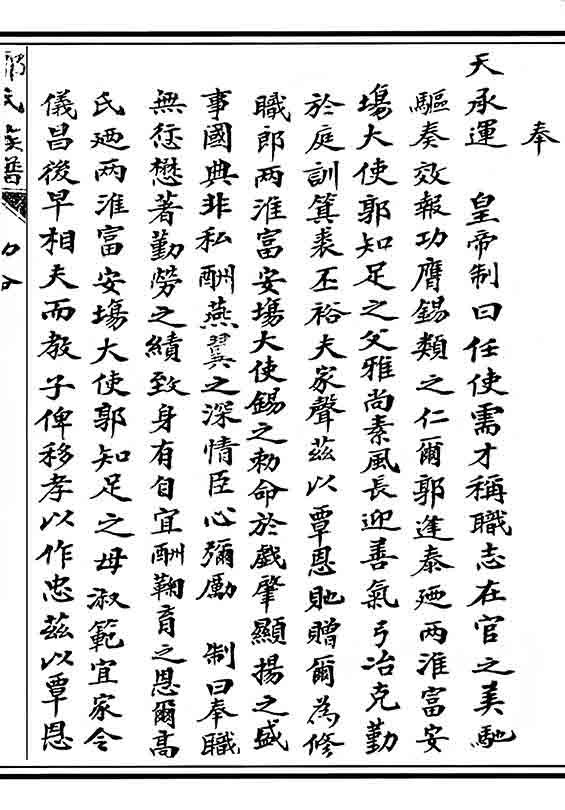 奉
天承運　皇帝制曰任使需才稱職志在官之美馳
驅奏效報功膺錫類之仁爾郭逢泰廼兩淮富安
場大使郭知足之父雅尚素風長迎善氣弓冶克勤
於庭訓箕裘丕裕夫家聲茲以覃恩貤贈爾為修
職郎兩淮富安場大使錫之勅命於戲肇顯揚之盛
事國典非私酬燕翼之深情臣心彌勵　制曰奉職
無愆懋著勤勞之績致身有自宜酬鞠育之恩爾高
氏廼兩淮富安場大使郭知足之母淑範宜家令
儀昌後早相夫而教子俾移孝以作忠茲以覃恩
氏族譜